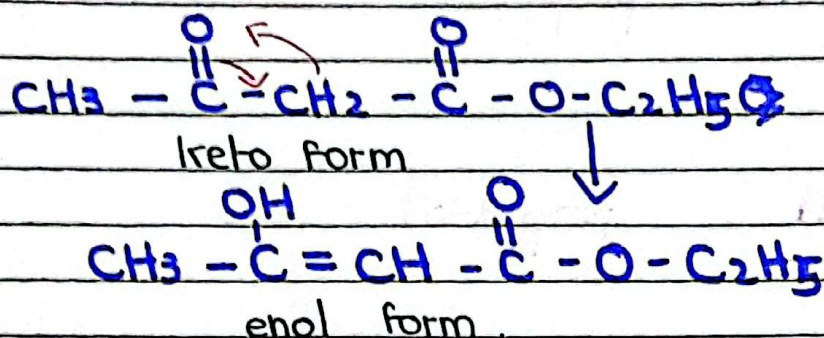 O O
CH3 - C - CH2 - C - O - C2H5
keto form
OH O
CH3 - C = CH - C - O - C2H5
enol form.